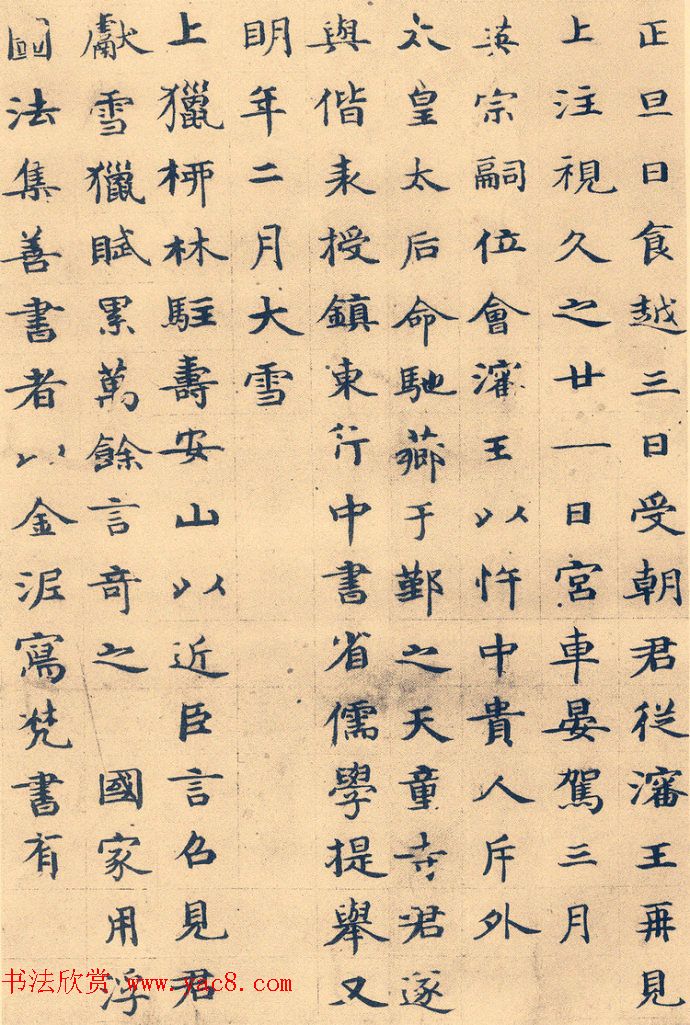 正旦日食越三日受朝君從瀋王再見
上注視久之廿一日宮車晏駕三月
英宗嗣位會瀋王以忤中貴人斥外
太皇太后命馳薌于鄞之天童寺君遂
與偕來授鎮東行中書省儒學提舉又
明年二月大雪
上獵栁林駐壽安山以近臣言召見君
獻雪獵賦累萬餘言奇之 國家用浮
圖法集善書者以金泥寫梵書有
书法欣赏 www.yac8.com